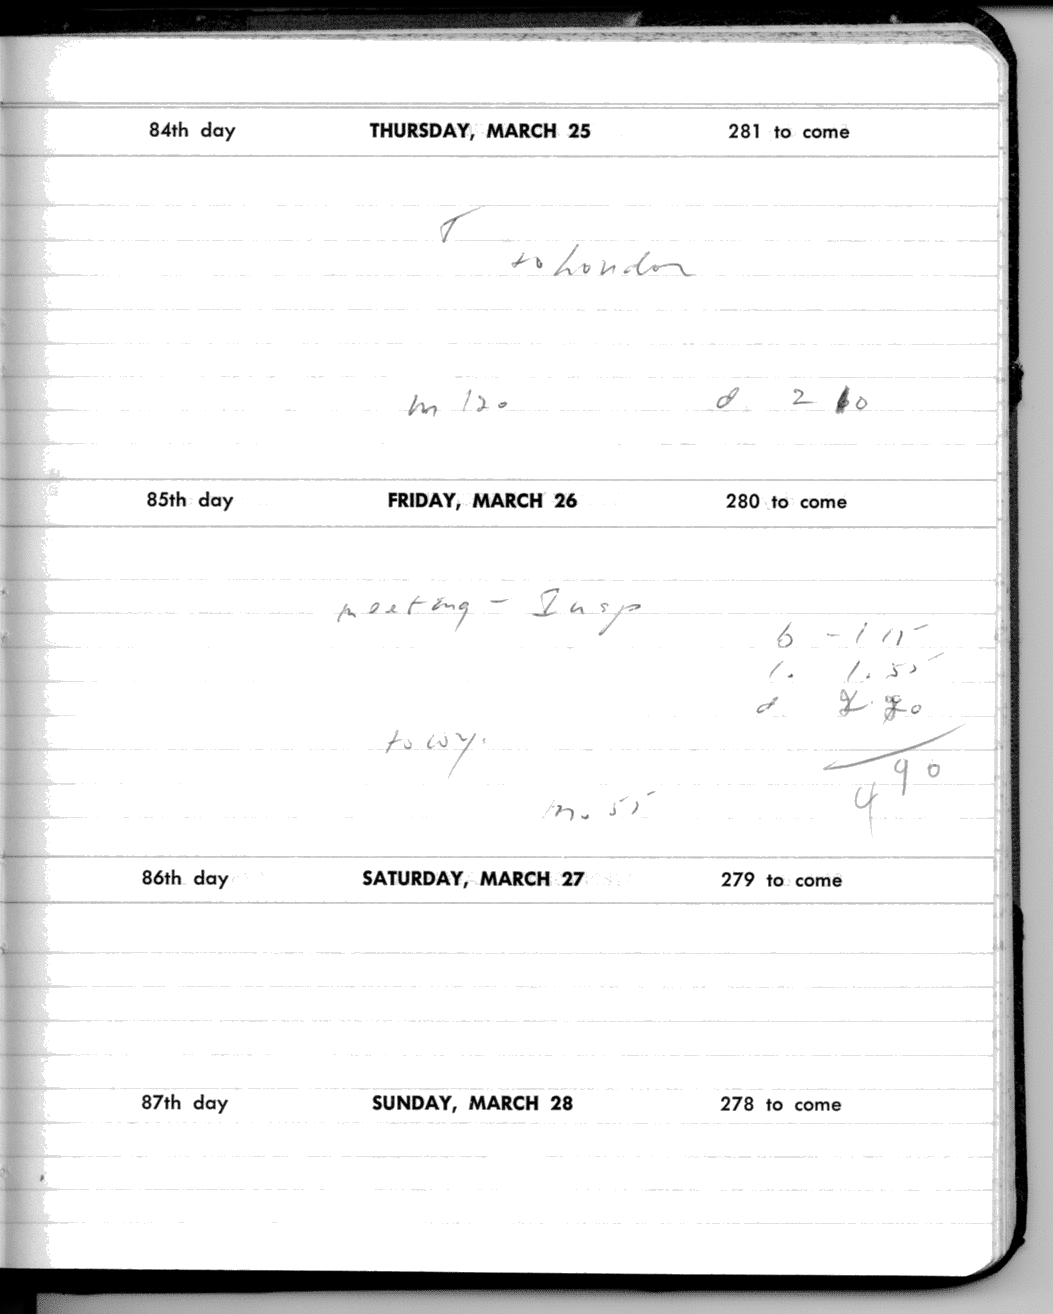 84th day THURSDAY, MARCH 25 281 to come
T
to London
m 120 d 2 10
85th day FRIDAY, MARCH 26 280 to come
meeting - Insp
b - 1 15
l. 1.55
d 2.20
to wy.
4 90
m. 55
86th day SATURDAY, MARCH 27 279 to come
87th day SUNDAY, MARCH 28 278 to come